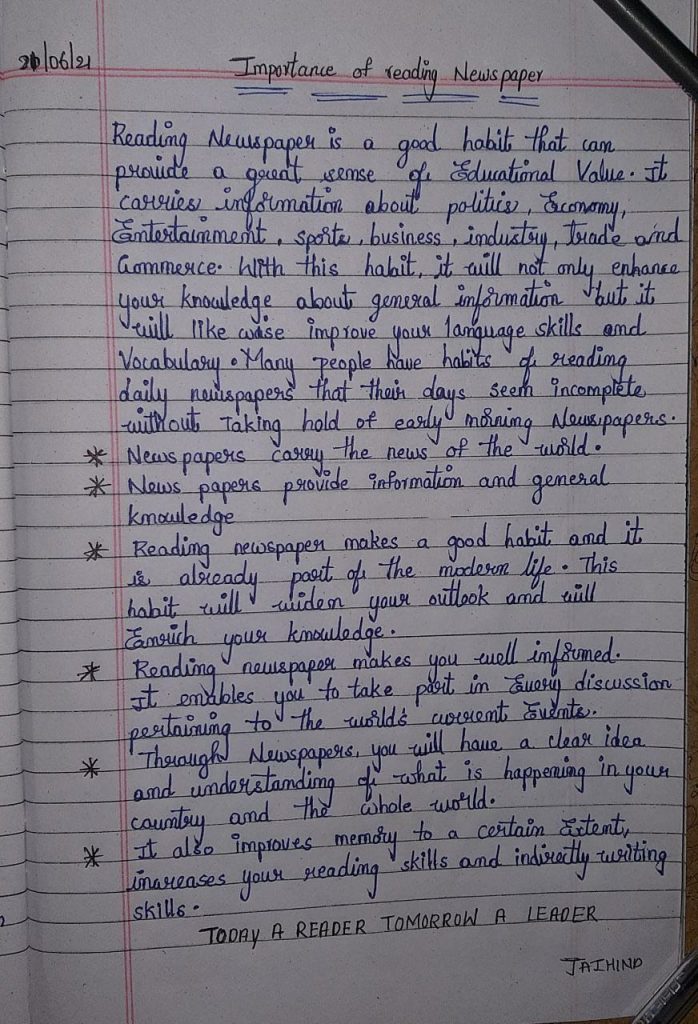 21/06/21
Importance of reading Newspaper
Reading Newspaper is a good habit that can
provide a great sense of Educational Value. It
carries information about politics, Economy,
Entertainment, sports, business, industry, trade and
Commerce. With this habit, it will not only enhance
your knowledge about general information but it
will like wise improve your language skills and
Vocabulary. Many people have habits of reading
daily newspapers that their days seem incomplete
without taking hold of early morning Newspapers.
* News papers carry the news of the world.
* News papers provide information and general
knowledge
* Reading newspaper makes a good habit and it
is already part of the modern life. This
habit will widen your outlook and will
Enrich your knowledge.
* Reading newspaper makes you well informed.
It enables you to take part in Every discussion
pertaining to the world's current Events.
* Through Newspapers, you will have a clear idea
and understanding of what is happening in your
country and the whole world.
* It also improves memory to a certain Extent,
increases your reading skills and indirectly writing
skills.
TODAY A READER TOMORROW A LEADER
JAIHIND